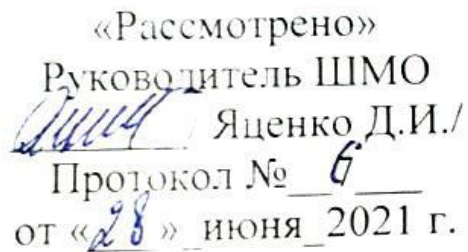 «Рассмотрено»
Руководитель ШМО
Яценко Д.И./
Протокол №__6___
от «28»_июня_2021 г.